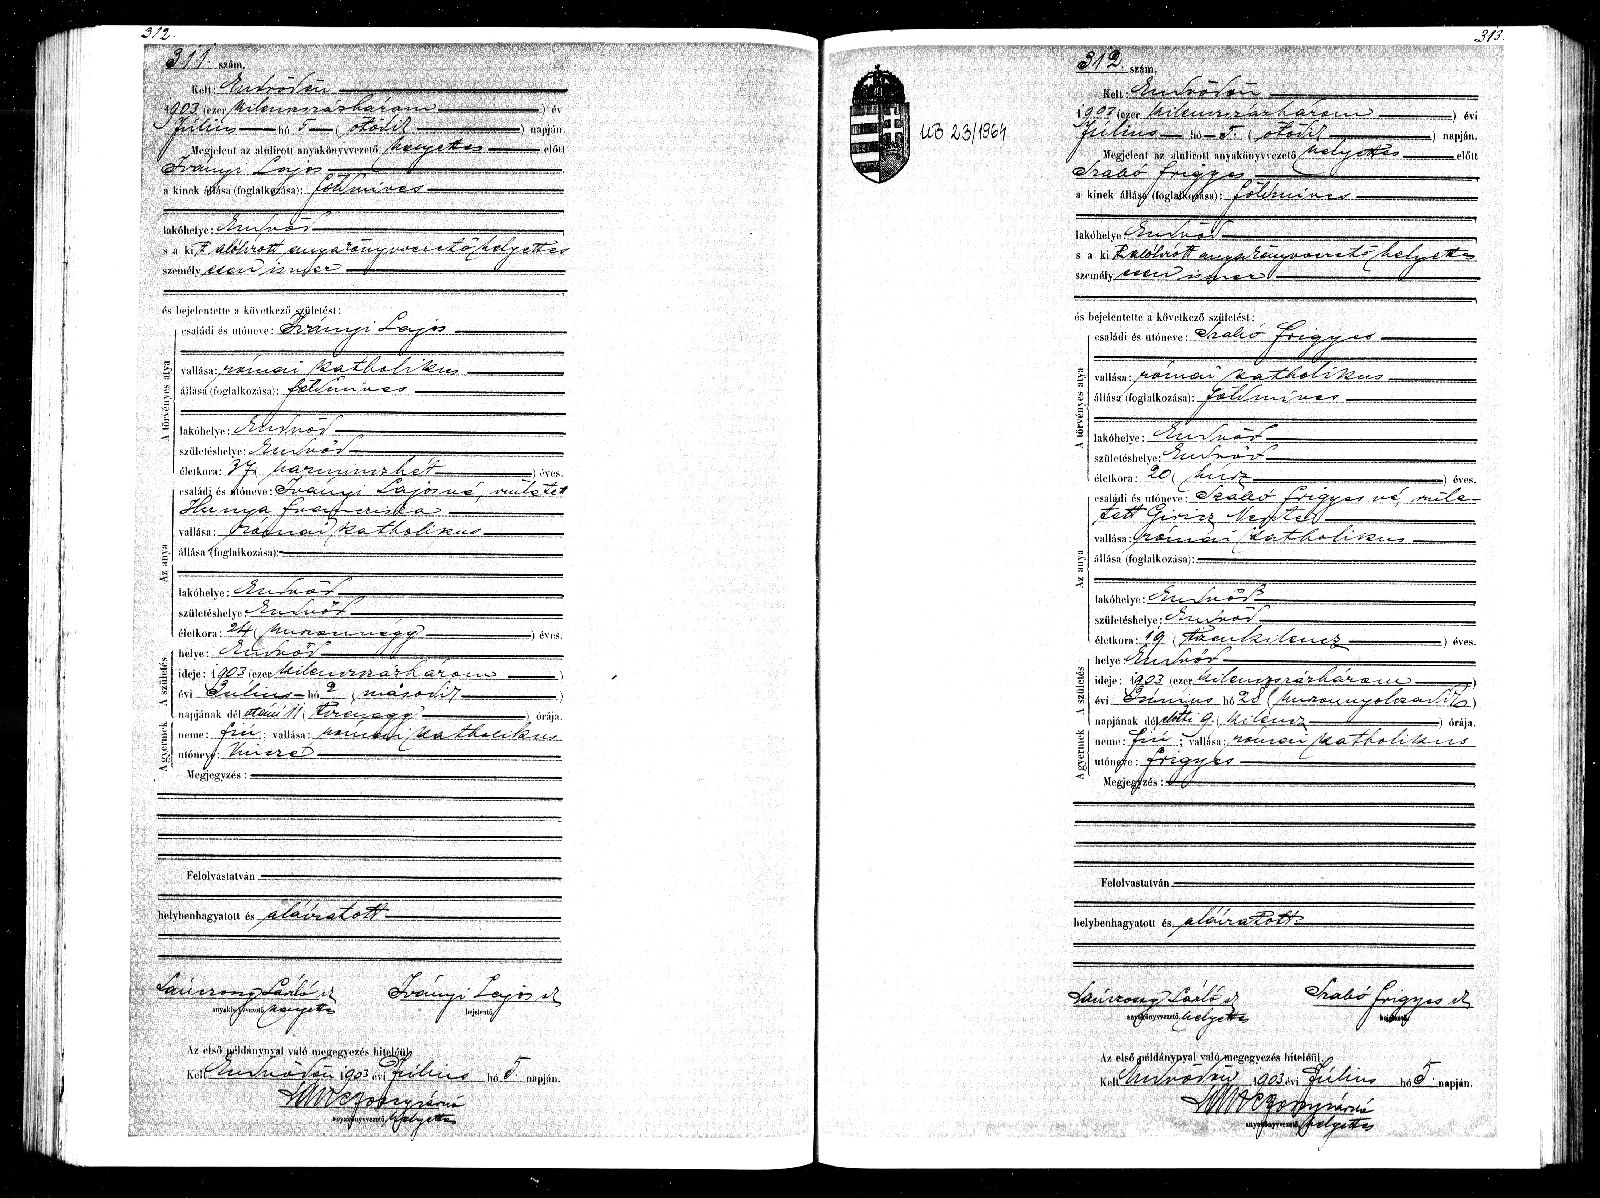 312.
311. szám.
Kelt: Endrődön
1903 (ezer kilenczszázhárom) év
Július hó 5 (ötödik) napján.
Megjelent az alulirott anyakönyvvezető helyettes előtt
Iványi Lajos
a kinek állása (foglalkozása): földmíves
lakóhelye: Endrőd
s a kit alólirott anyakönyvvezető helyettes
személyesen ismer
és bejelentette a következő születést:
A törvényes atya
családi és utóneve: Iványi Lajos
vallása: római katholikus
állása (foglalkozása): földmíves
lakóhelye: Endrőd
születéshelye: Endrőd
életkora: 37 (harminczhét) éves.
Az anya
családi és utóneve: Iványi Lajosné, született
Hunya Francziska
vallása: római katholikus
állása (foglalkozása):
lakóhelye: Endrőd
születéshelye Endrőd
életkora: 24 (huszonnégy) éves.
A születés
helye: Endrőd
ideje: 1903 (ezer kilenczszázhárom)
évi Július hó 2 (második)
napjának dél utáni 11 (tizenegy) órája.
A gyermek
neme: fiú vallása: római katholikus
utóneve: Vincze
Megjegyzés:
Felolvastatván
helybenhagyatott és aláiratott
László sk Iványi Lajos sk
anyakönyvvezető helyettes bejelentő
Az első példánynyal való megegyezés hiteléül,
Kelt Endrődön 1903 évi Július hó 5 napján.
anyakönyvvezető helyettes
313.
312. szám.
UB 23/1964
Kelt: Endrődön
1903 (ezer kilenczszázhárom) évi
Július hó 5. (ötödik) napján.
Megjelent az alulirott anyakönyvvezető helyettes előtt
Szabó Frigyes
a kinek állása (foglalkozása): földmíves
lakóhelye: Endrőd
s a kit alólirott anyakönyvvezető helyettes
személyesen ismer
és bejelentette a következő születést:
A törvényes atya
családi és utóneve: Szabó Frigyes
vallása: római katholikus
állása (foglalkozása): földmíves
lakóhelye: Endrőd
születéshelye: Endrőd
életkora: 20 (húsz) éves.
Az anya
családi és utóneve: Szabó Frigyesné, szüle-
tett Giricz
vallása: római katholikus
állása (foglalkozása):
lakóhelye: Endrőd
születéshelye: Endrőd
életkora: 19 (tizenkilencz) éves.
A születés
helye: Endrőd
ideje: 1903 (ezer kilenczszázhárom)
évi Június hó 28 (huszonnyolczadik)
napjának dél előtti 9 (kilencz) órája.
A gyermek
neme: fiú; vallása: római katholikus
utóneve: Frigyes
Megjegyzés:
Felolvastatván
helybenhagyatott és aláiratott
László sk Szabó Frigyes sk
anyakönyvvezető helyettes bejelentő
Az első példánynyal való megegyezés hiteléül,
Kelt Endrődön 1903 évi Július hó 5. napján.
anyakönyvvezető helyettes